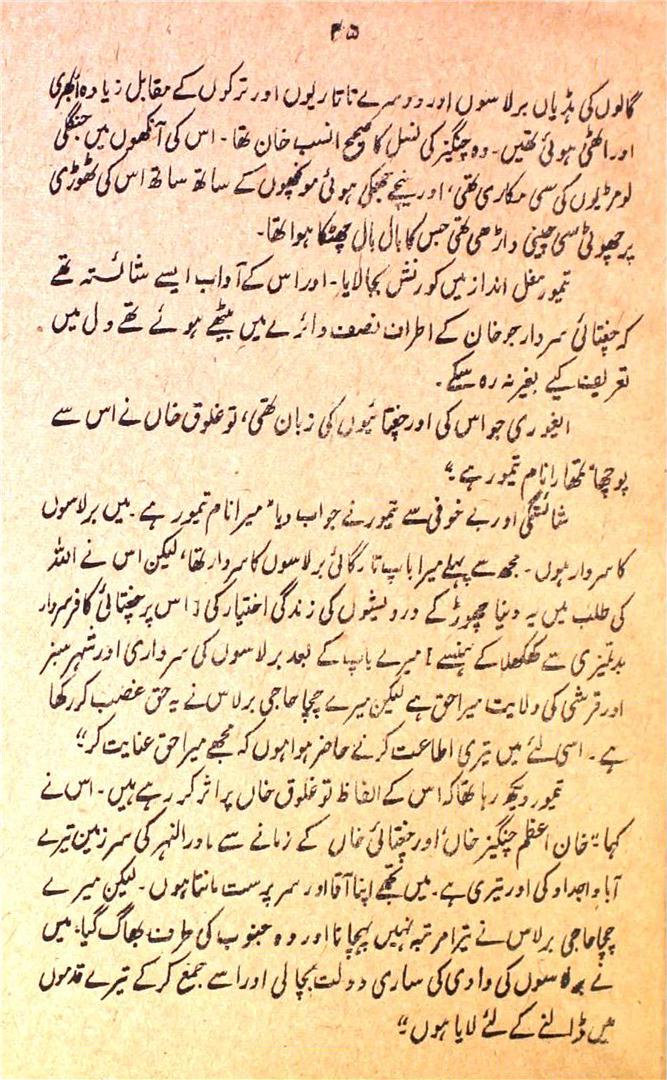 ۴۵
گالوں کی ہڈیاں برلاسوں اور دوسرے تاتاریوں اور ترکوں کے مقابل زیادہ ابھری
اور اٹھی ہوئی تھیں۔ وہ چنگیز کی نسل کا صحیح النسب خان تھا۔ اس کی آنکھوں میں جنگلی
لومڑیوں کی سی مکاری تھی، اور نیچے جھکی ہوئی مونچھوں کے ساتھ ساتھ اس کی ٹھوڑی
پر چھوٹی سی چینی داڑھی تھی جس کا بال بال چھٹکا ہوا تھا۔
تیمور مغل انداز میں کورنش بجا لایا۔ اور اس کے آداب ایسے شائستہ تھے
کہ چغتائی سردار جو خان کے اطراف نصف دائرے میں بیٹھے ہوئے تھے دل میں
تعریف کیے بغیر نہ رہ سکے۔
ایغوری جو اس کی اور چغتائیوں کی زبان تھی، توغلوق خاں نے اس سے
پوچھا "تمھارا نام تیمور ہے۔"
شائستگی اور بے خوفی سے تیمور نے جواب دیا "میرا نام تیمور ہے۔ میں برلاسوں
کا سردار ہوں۔ مجھ سے پہلے میرا باپ تارگائی برلاسوں کا سردار تھا، لیکن اس نے اللہ
کی طلب میں یہ دنیا چھوڑ کے درویشوں کی زندگی اختیار کی [اس پر چغتائی کافر سردار
بدتمیزی سے کھکھلا کے ہنسے] میرے باپ کے بعد برلاسوں کی سرداری اور شہر سبز
اور قرشی کی ولایت میرا حق ہے لیکن میرے چچا حاجی برلاس نے یہ حق غصب کر رکھا
ہے۔ اسی لئے میں تیری اطاعت کرنے حاضر ہوا ہوں کہ مجھے میرا حق عنایت کر"
تیمور دیکھ رہا تھا کہ اس کے الفاظ توغلوق خاں پر اثر کر رہے ہیں۔ اس نے
کہا۔ "خان اعظم چنگیز خاں اور چغتائی خاں کے زمانے سے ماورالنہر کی سرزمین تیرے
آبا و اجداد کی اور تیری ہے۔ میں تجھے اپنا آقا اور سرپرست مانتا ہوں۔ لیکن میرے
چچا حاجی برلاس نے تیرا مرتبہ نہیں پہچانا اور وہ جنوب کی طرف بھاگ گیا، میں
نے برلاسوں کی وادی کی ساری دولت بچا لی اور اسے جمع کر کے تیرے قدموں
میں ڈالنے کے لئے لایا ہوں۔"